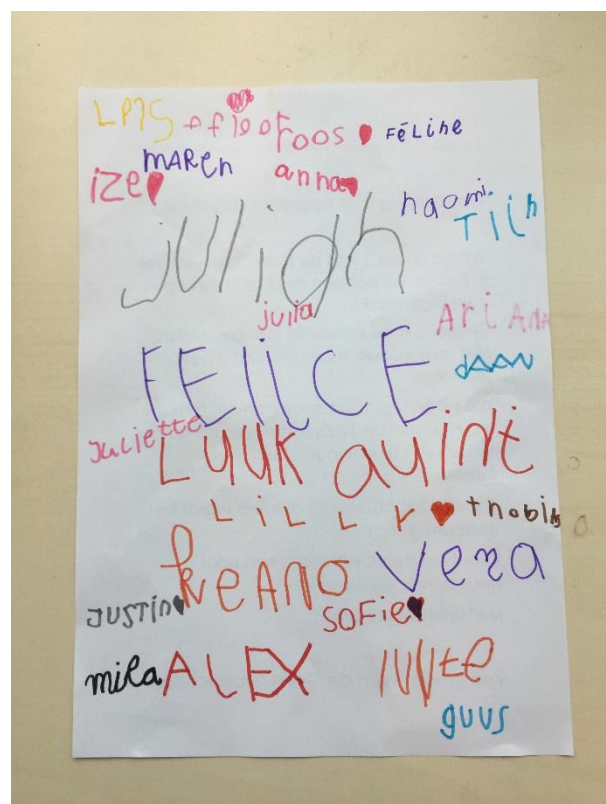 roos FéLine
MAREn
ize anna
naomi.
Tijn
julian
julia
AriAnA
FElicE
dAAN
Juliette
LUUK quint
LiLLY tnobias
keANO vera
JUSTin SOFie
mila ALEX
guus